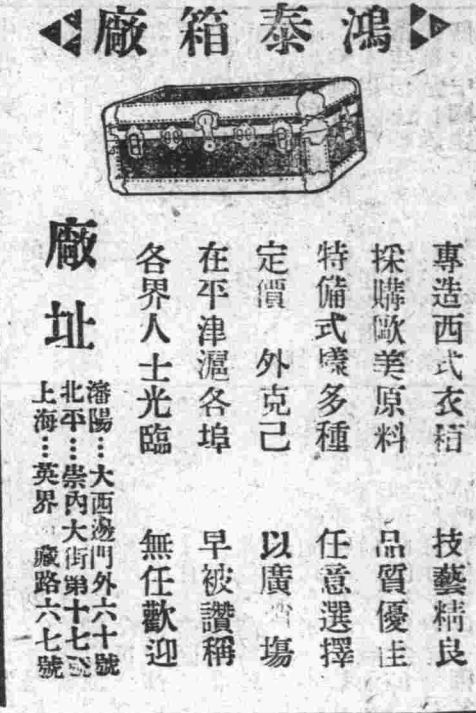 鴻泰箱廠
專造西式衣箱 技藝精良
採購歐美原料 品質優佳
特備式樣多種 任意選擇
定價 外克己 以廣 塲
在平津滬各埠 早被讚稱
各界人士光臨 無任歡迎
廠址
瀋陽…大西邊門外六十號
北平…崇內大街第十七號
上海…英界 藏路六七號